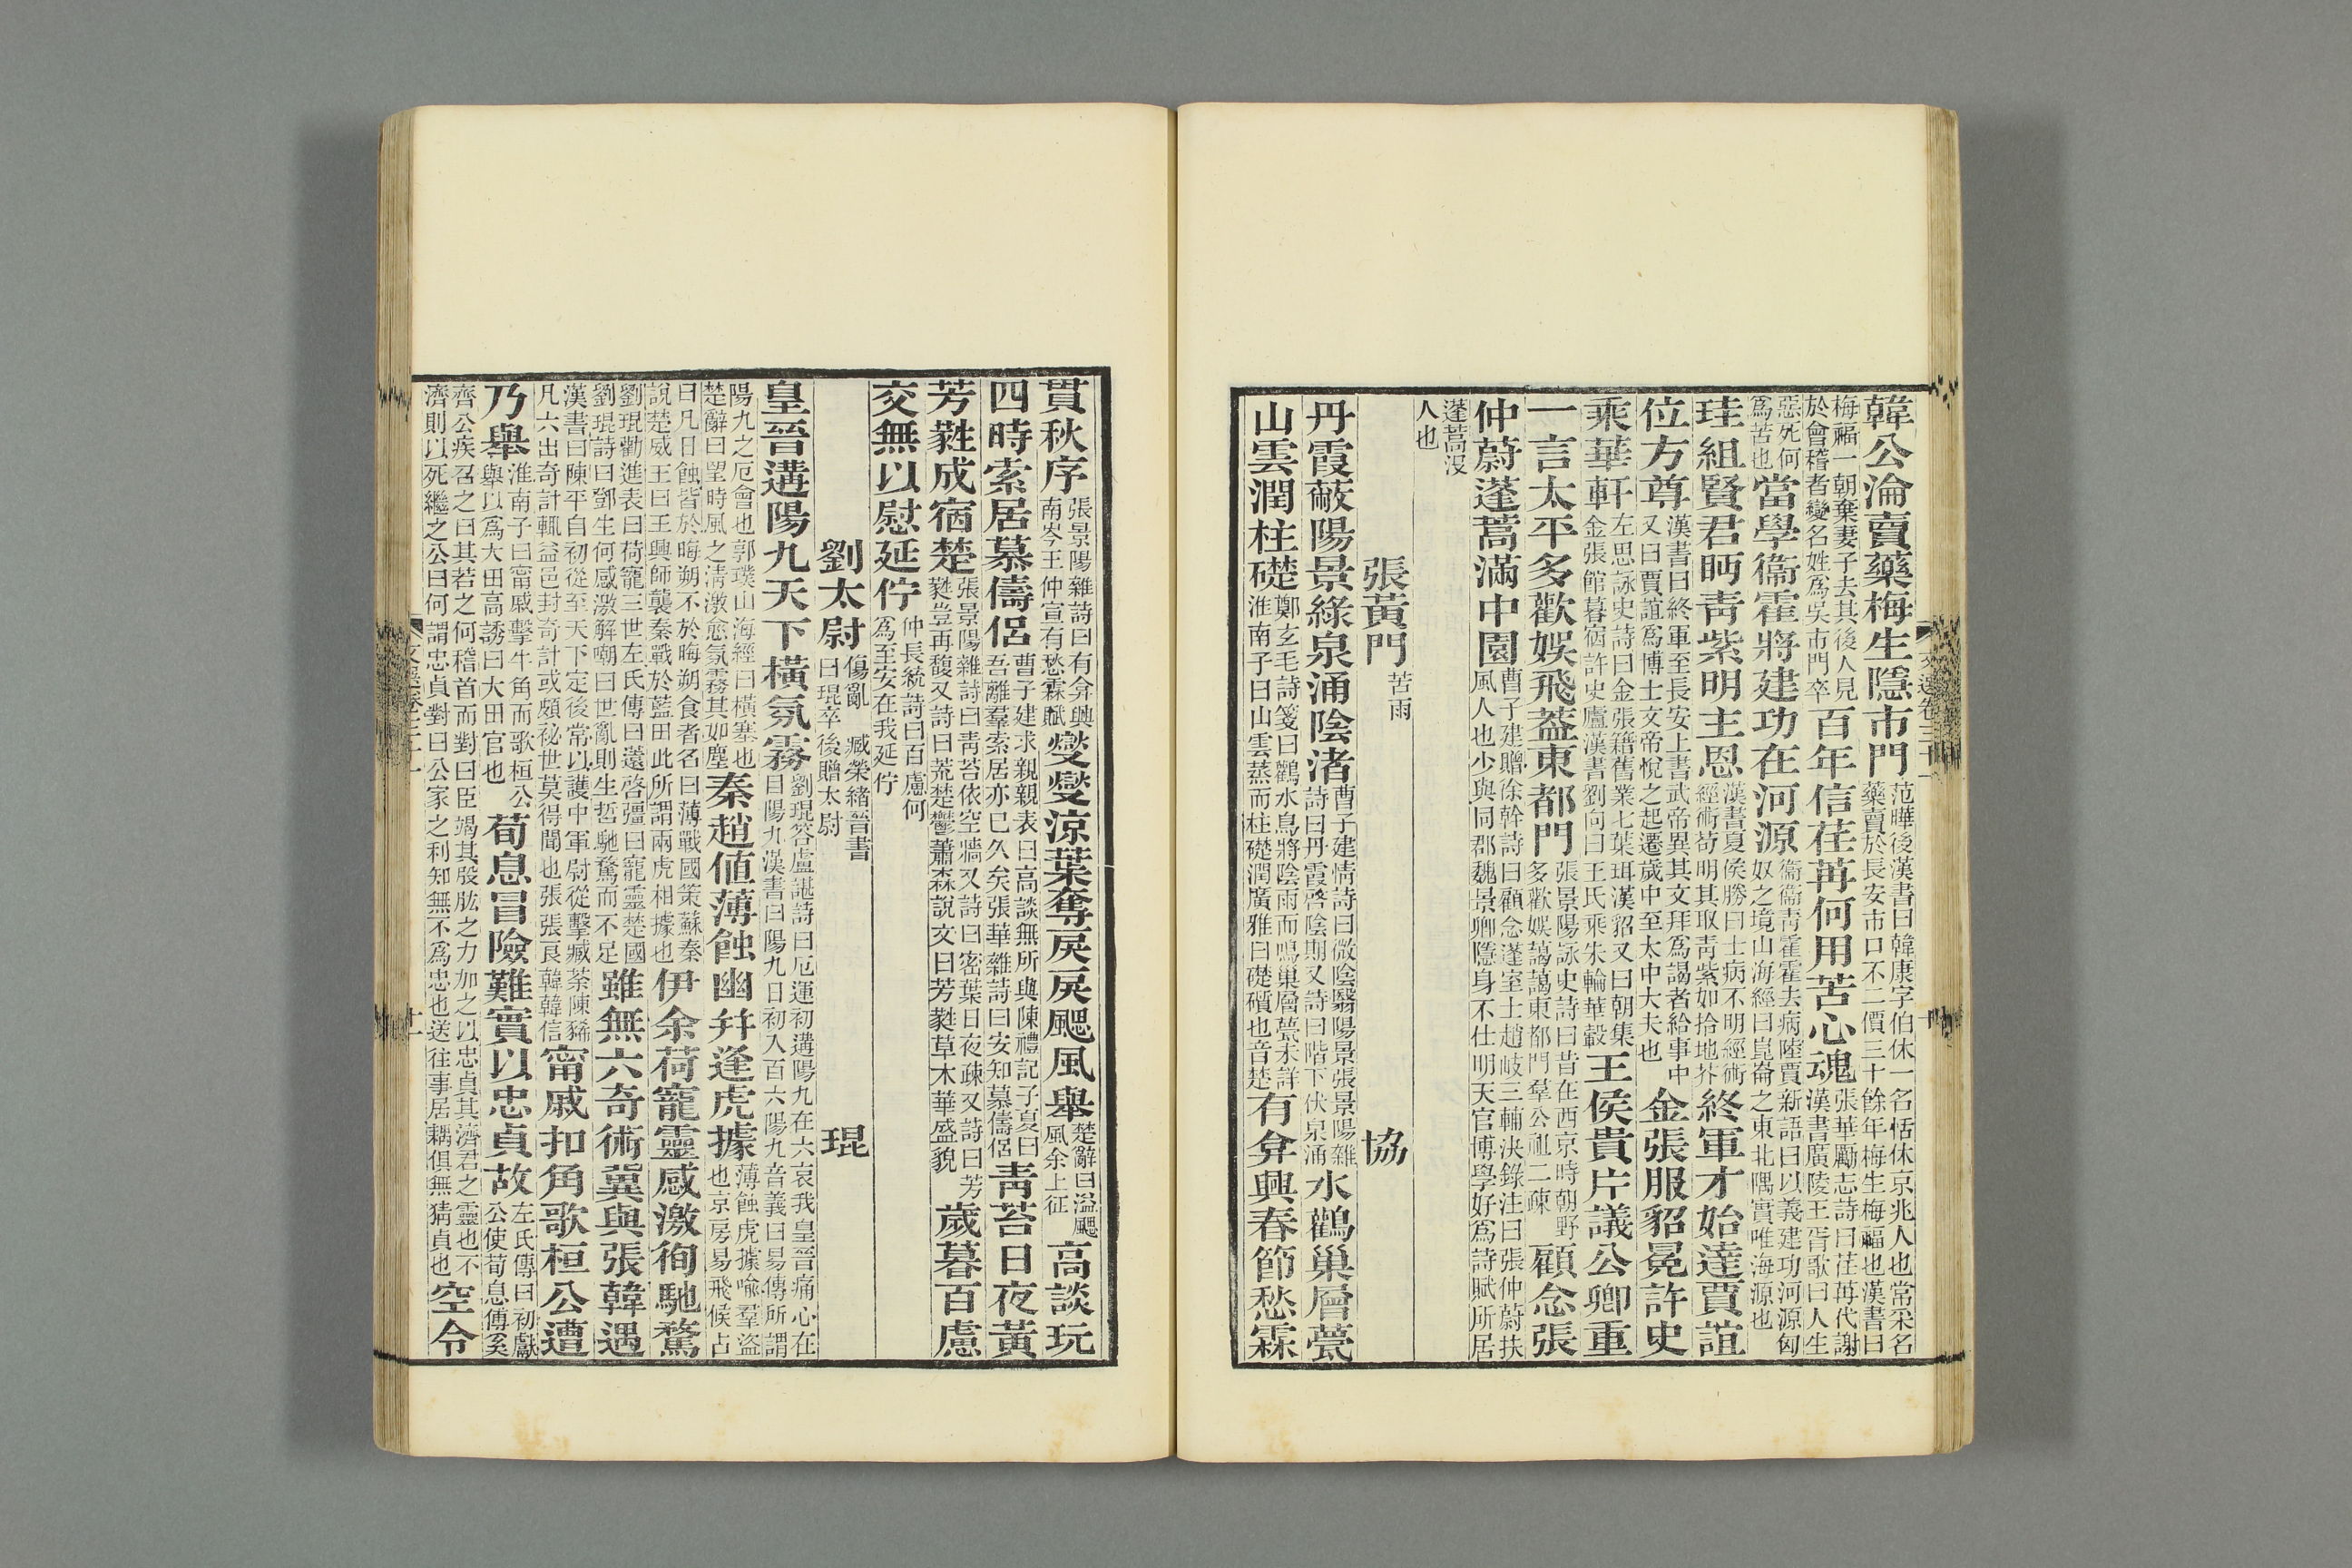 韓公淪賣藥梅生隱市門范曄後漢書曰韓康字伯休一名恬休京兆人也常采名藥賣於長安市口不二價三十餘年梅生梅福也漢書曰
梅福一朝棄妻子去其後人見於會稽者變名姓爲吳市門卒百年信荏苒何用苦心魂張華勵志詩曰荏苒代謝漢書廣陵王胥歌曰人生
惡死何爲苦也當學衞霍將建功在河源衞衞靑霍霍去病陸賈新語曰以義建功河源匈奴之境山海經曰崑崙之東北隅實唯海源也
珪組賢君眄靑紫明主恩漢書夏侯勝曰士病不明經術經術苟明其取靑紫如拾地芥終軍才始達賈誼
位方尊漢書曰終軍至長安上書武帝異其文拜爲謁者給事中又曰賈誼爲博士文帝悅之起遷歲中至太中大夫也金張服貂冕許史
乘華軒左思詠史詩曰金張籍舊業七葉珥漢貂又曰朝集金張館暮宿許史廬漢書劉向曰王氏乘朱輪華轂王侯貴片議公卿重
一言太平多歡娛飛蓋東都門張景陽詠史詩曰昔在西京時朝野多歡娛藹藹東都門羣公祖二疎顧念張
仲蔚蓬蒿滿中園曹子建贈徐幹詩曰顧念蓬室士趙岐三輔決錄注曰張仲蔚扶風人也少與同郡魏景卿隱身不仕明天官博學好爲詩賦所居
蓬蒿沒人也
張黃門苦雨 協
丹霞蔽陽景綠泉涌陰渚曹子建情詩曰微陰翳陽景張景陽雜詩曰丹霞啓陰期又詩曰階下伏泉涌水鸛巢層甍
山雲潤柱礎鄭玄毛詩箋曰鸛水鳥將陰雨而鳴巢層甍未詳淮南子曰山雲蒸而柱礎潤廣雅曰礎礩也音楚有弇興春節愁霖
貫秋序張景陽雜詩曰有弇興南岑王仲宣有愁霖賦燮燮涼葉奪戾戾颸風舉楚辭曰溢颸風余上征高談玩
四時索居慕儔侶曹子建求親親表曰高談無所與陳禮記子夏曰吾離羣索居亦已久矣張華雜詩曰安知慕儔侶靑苔日夜黃
芳蕤成宿楚張景陽雜詩曰靑苔依空牆又詩曰密葉日夜疎又詩曰芳蕤豈再馥又詩曰荒楚鬱蕭森說文曰芳蕤草木華盛貌歲暮百慮
交無以慰延佇仲長統詩曰百慮何爲至安在我延佇
劉太尉傷亂 臧榮緒晉書曰琨卒後贈太尉 琨
皇晉遘陽九天下橫氛霧劉琨答盧諶詩曰厄運初遘陽九在六哀我皇晉痛心在目陽九漢書曰陽九日初入百六陽九音義曰易傳所謂
陽九之厄會也郭璞山海經曰橫塞也楚辭曰望時風之淸激愈氛霧其如塵秦趙値薄蝕幽幷逢虎據薄蝕虎據喻羣盜也京房易飛候占
曰凡日蝕皆於晦朔不於晦朔食者名曰薄戰國策蘇秦說楚威王曰王興師襲秦戰於藍田此所謂兩虎相據也伊余荷寵靈感激徇馳騖
劉琨勸進表曰荷寵三世左氏傳曰薳啓彊曰寵靈楚國劉琨詩曰鄧生何感激解嘲曰世亂則生哲馳騖而不足雖無六奇術冀與張韓遇
漢書曰陳平自初從至天下定後常以護中軍尉從擊臧荼陳豨凡六出奇計輒益邑封奇計或頗祕世莫得聞也張張良韓韓信甯戚扣角歌桓公遭
乃舉淮南子曰甯戚擊牛角而歌桓公舉以爲大田高誘曰大田官也荀息冒險難實以忠貞故左氏傳曰初獻公使荀息傅奚
齊公疾召之曰其若之何稽首而對曰臣竭其股肱之力加之以忠貞其濟君之靈也不濟則以死繼之公曰何謂忠貞對曰公家之利知無不爲忠也送往事居耦俱無猜貞也空令